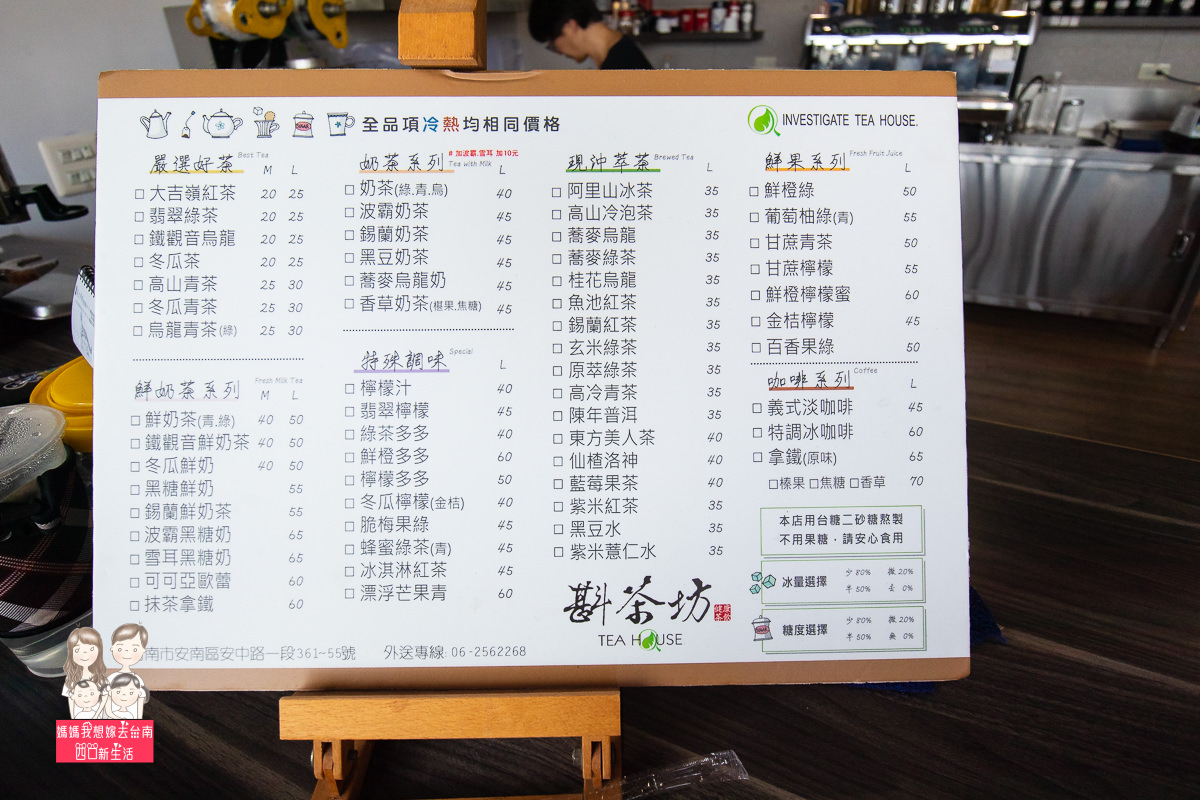 全品項冷熱均相同價格
INVESTIGATE TEA HOUSE.
嚴選好茶 Best Tea M L
大吉嶺紅茶 20 25
翡翠綠茶 20 25
鐵觀音烏龍 20 25
冬瓜茶 20 25
高山青茶 25 30
冬瓜青茶 25 30
烏龍青茶(綠) 25 30
鮮奶茶系列 Fresh Milk Tea M L
鮮奶茶(青.綠) 40 50
鐵觀音鮮奶茶 40 50
冬瓜鮮奶 40 50
黑糖鮮奶 55
錫蘭鮮奶茶 55
波霸黑糖奶 65
雪耳黑糖奶 65
可可亞歐蕾 60
抹茶拿鐵 60
奶茶系列 Tea with Milk #加波霸.雪耳 加10元 L
奶茶(綠.青.烏) 40
波霸奶茶 45
錫蘭奶茶 45
黑豆奶茶 45
蕎麥烏龍奶 45
香草奶茶(榛果.焦糖) 45
特殊調味 Special L
檸檬汁 40
翡翠檸檬 45
綠茶多多 40
鮮橙多多 60
檸檬多多 50
冬瓜檸檬(金桔) 40
脆梅果綠 45
蜂蜜綠茶(青) 45
冰淇淋紅茶 45
漂浮芒果青 60
現沖萃茶 Brewed Tea L
阿里山冰茶 35
高山冷泡茶 35
蕎麥烏龍 35
蕎麥綠茶 35
桂花烏龍 35
魚池紅茶 35
錫蘭紅茶 35
玄米綠茶 35
原萃綠茶 35
高冷青茶 35
陳年普洱 35
東方美人茶 40
仙楂洛神 40
藍莓果茶 40
紫米紅茶 35
黑豆水 35
紫米薏仁水 35
鮮果系列 Fresh Fruit Juice L
鮮橙綠 50
葡萄柚綠(青) 55
甘蔗青茶 50
甘蔗檸檬 55
鮮橙檸檬蜜 60
金桔檸檬 45
百香果綠 50
咖啡系列 Coffee L
義式淡咖啡 45
特調冰咖啡 60
拿鐵(原味) 65
□榛果 □焦糖 □香草 70
本店用台糖二砂糖熬製
不用果糖．請安心食用
冰量選擇 少80% 微20%
半50% 去0%
糖度選擇 少80% 微20%
半50% 無0%
斟茶坊 健康茶飲
TEA HOUSE
南市安南區安中路一段361-55號 外送專線: 06-2562268
媽媽我想嫁去台南
四口新生活